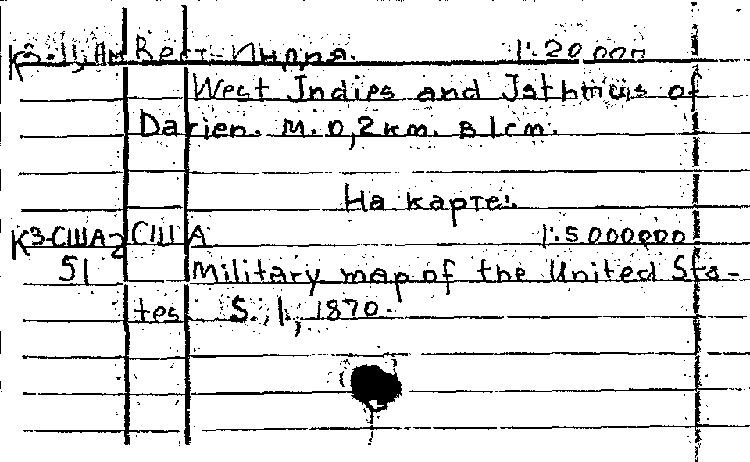 К3-Ц, Ам Вест-Индия. 1:20 000
West Indies and Isthmus of
Darien. М. 0,2 км. в 1 см.
На карте:
К3-США-2 США 1:5 000000
51 Military map of the United Sta-
tes S. l., 1870.